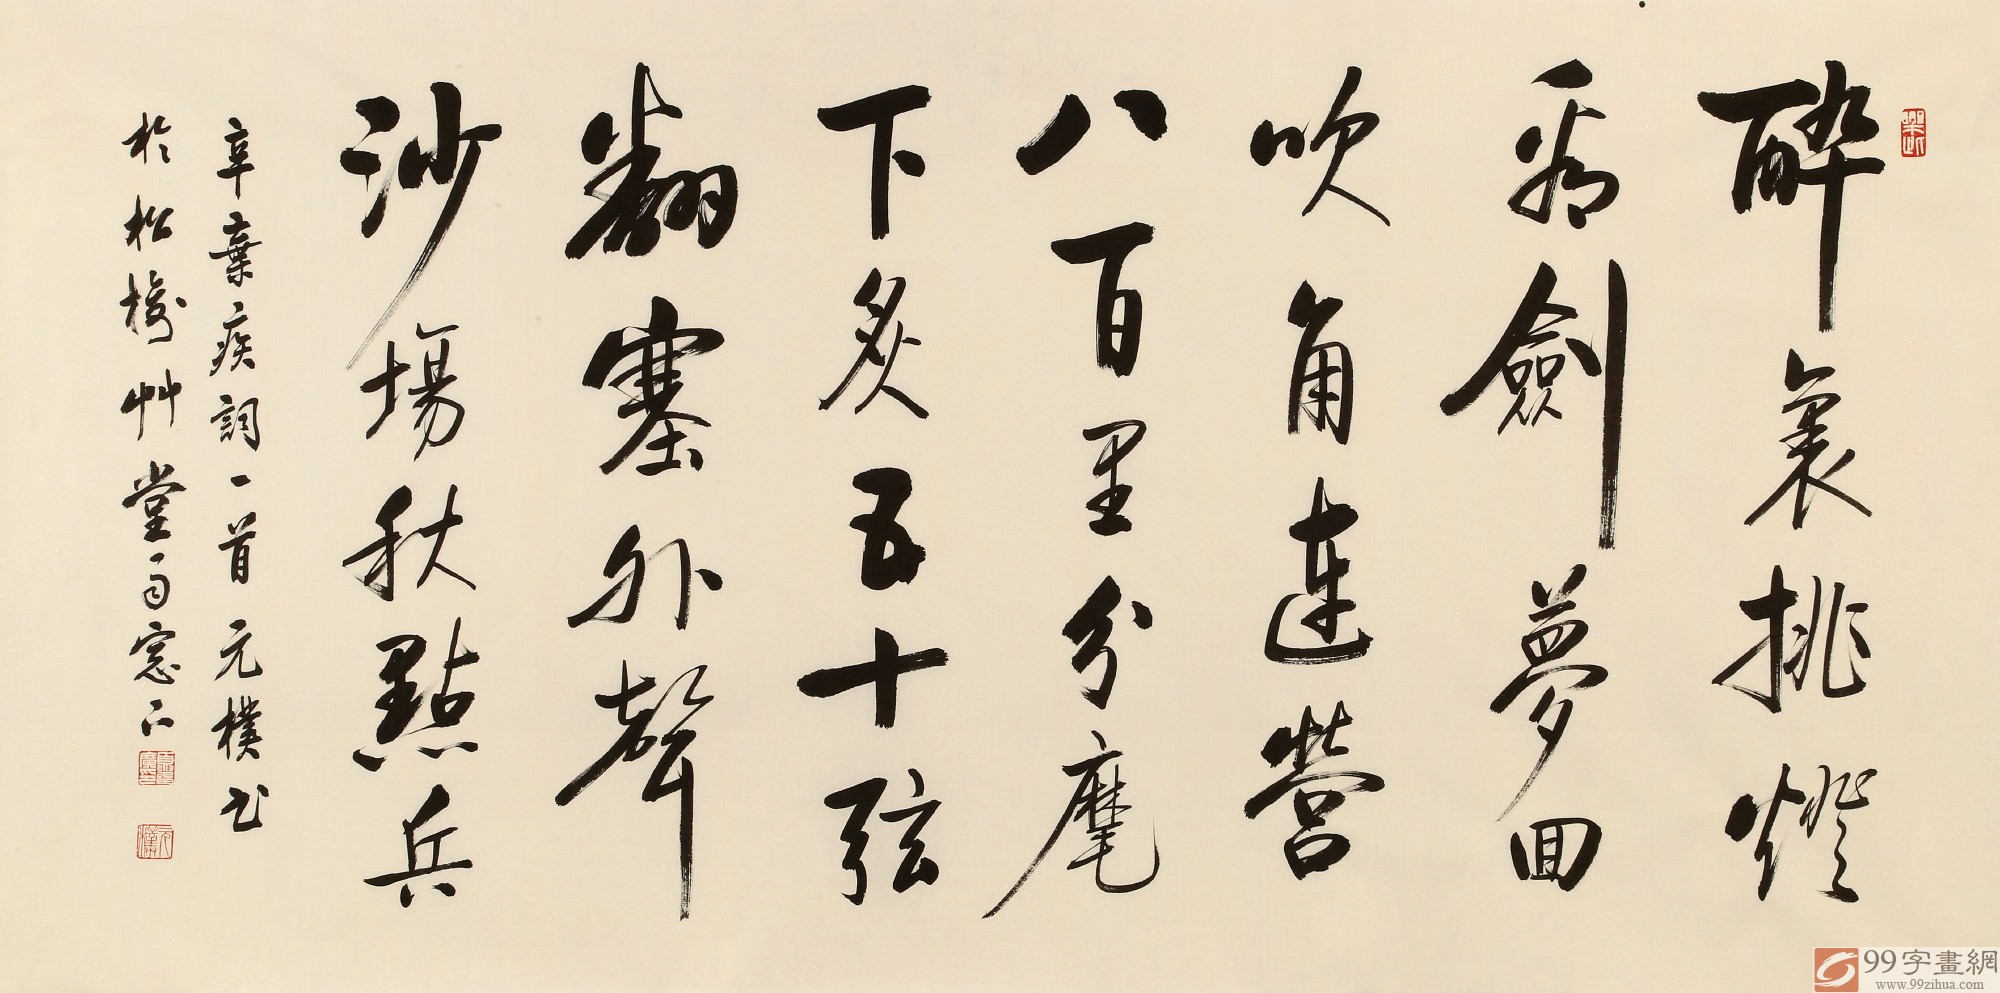 醉裏挑燈
看劍夢回
吹角連營
八百里分麾
下炙五十弦
翻塞外聲
沙場秋點兵
辛棄疾詞一首元樸書
於松梅艸堂南窓下
99字畫網
www.99zihua.com